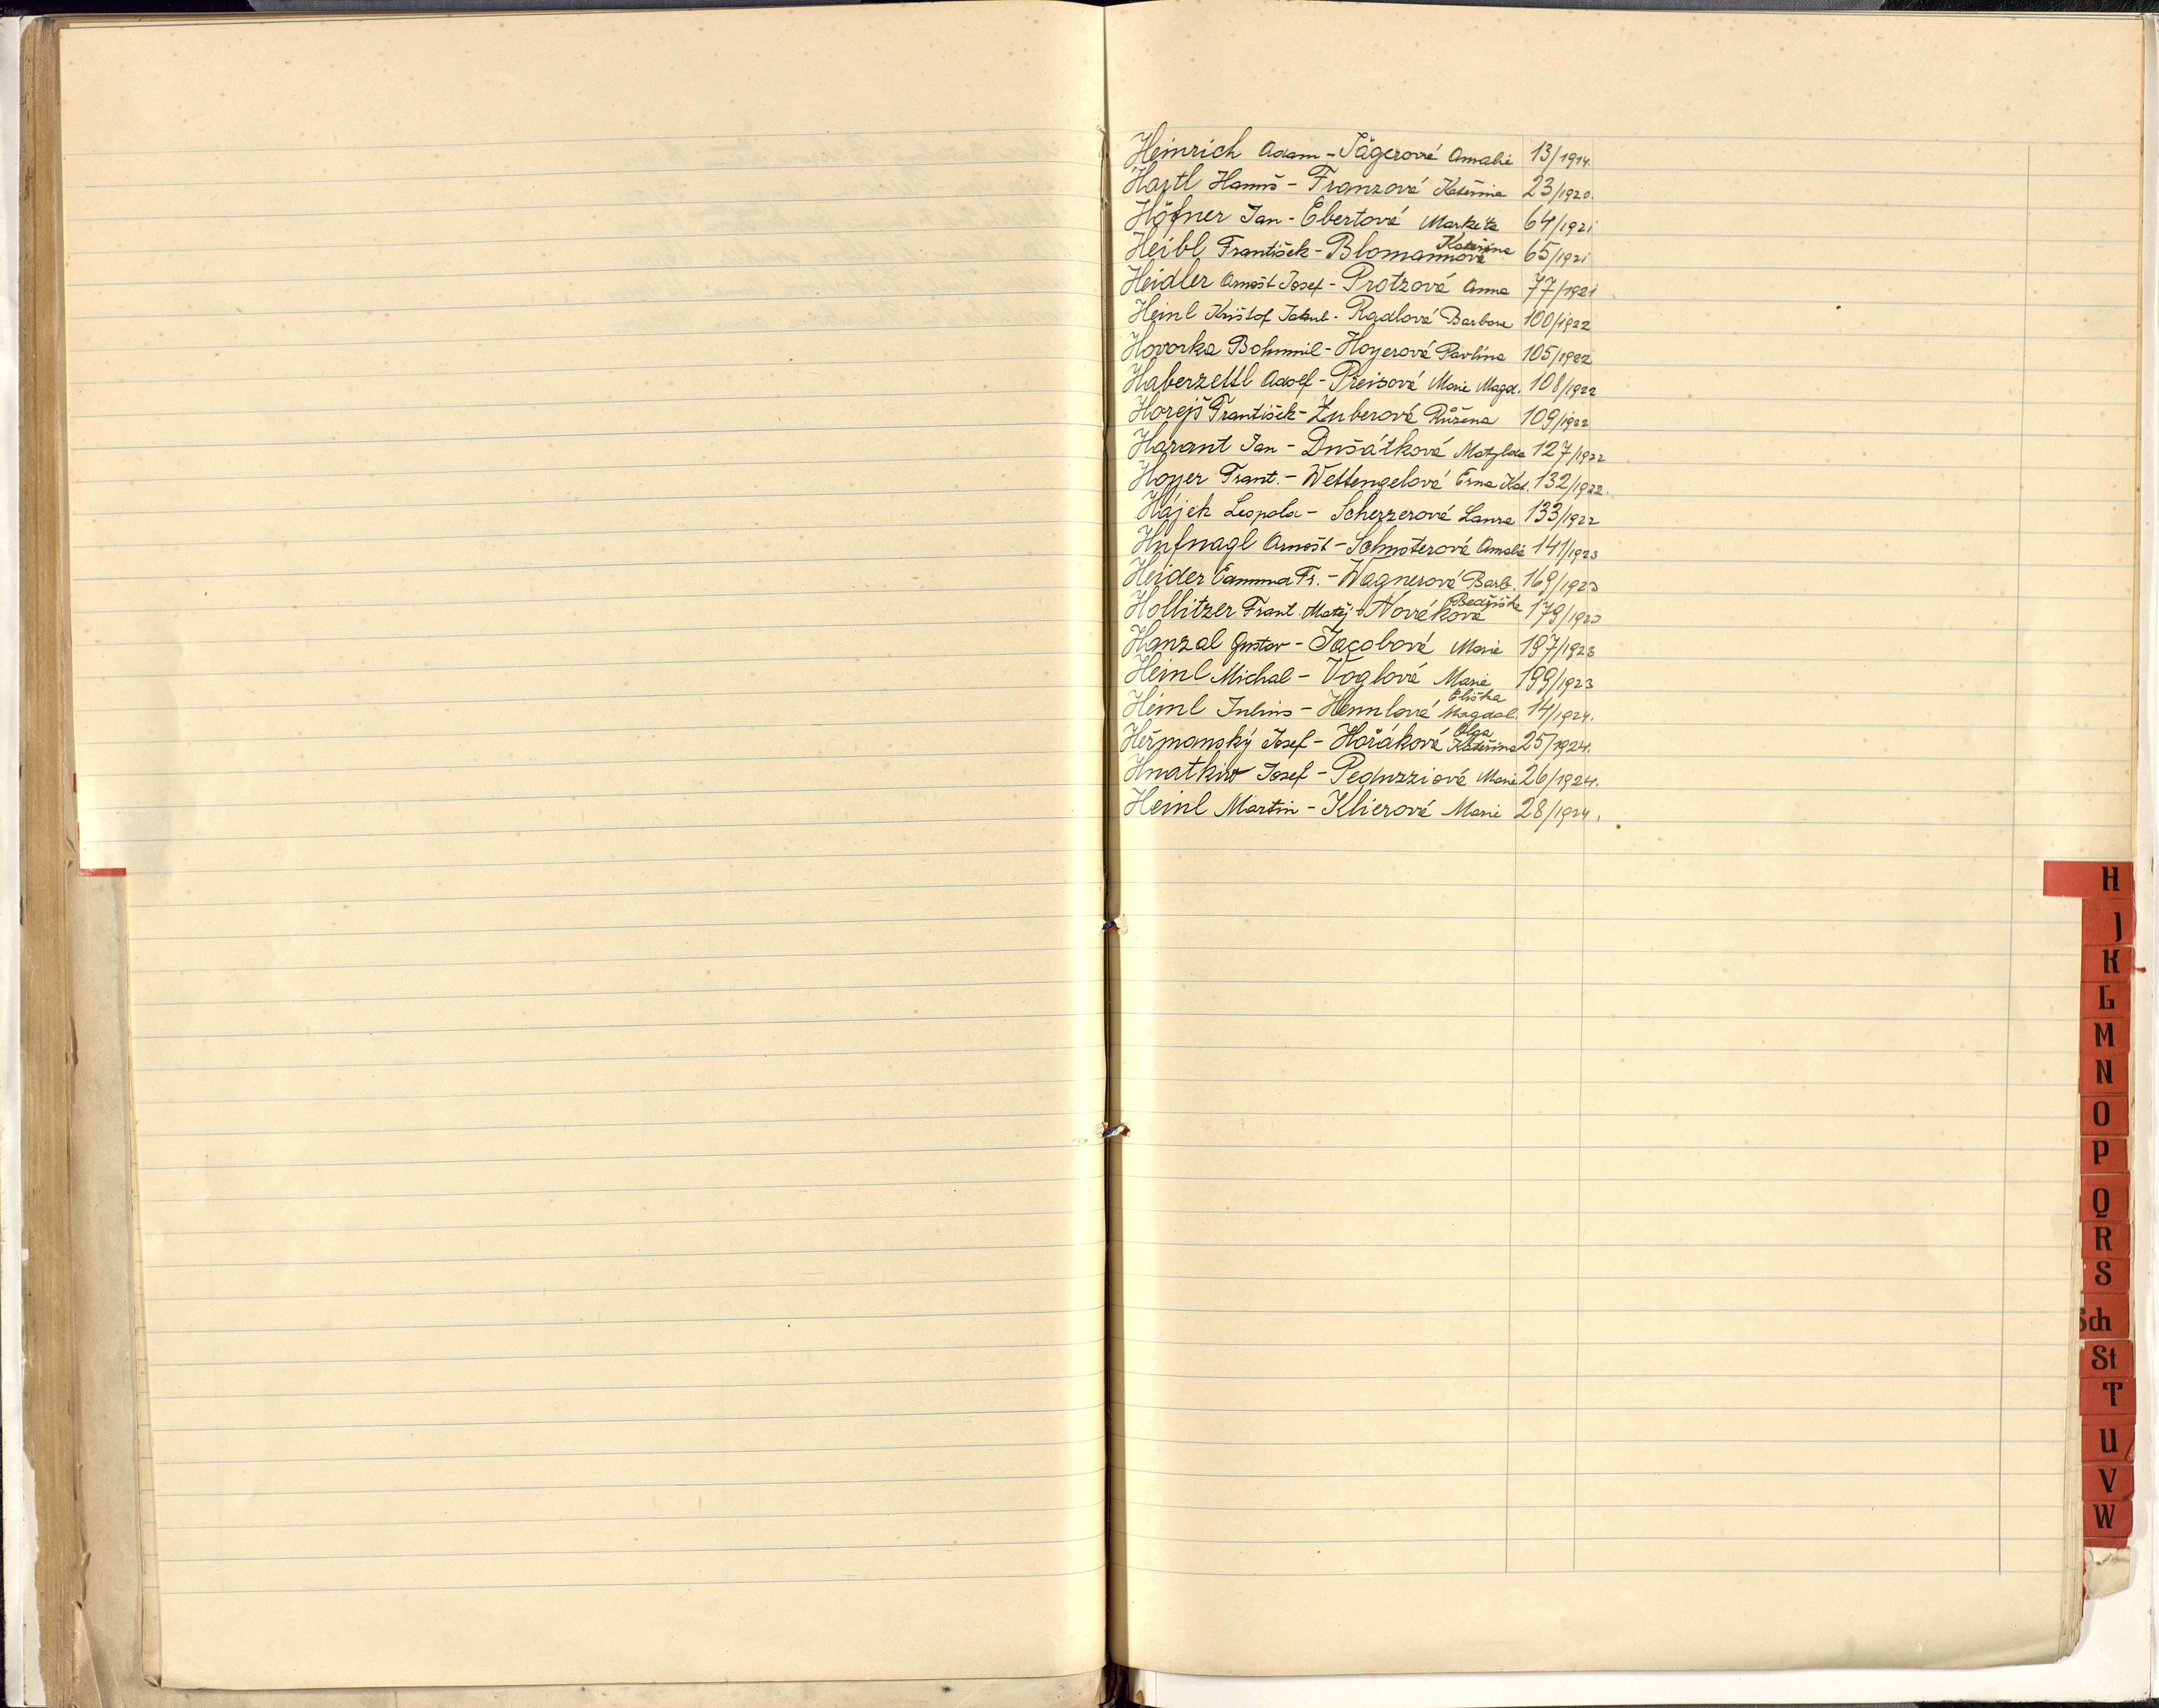 Heinrich Adam - Jägerová Amalie 13/1914.
Hartl Hanuš - Franzová Kateřina 23/1920.
Höfner Jan - Ebertová Markéta 64/1921
Heibl František - Blomannová Kateřina 65/1921
Heidler Arnošt Josef - Protzová Anna 77/1921
Heinl Krištof Jakub - Radlová Barbora 100/1922
Hovorka Bohumil - Hoyerová Pavlína 105/1922
Haberzettl Adolf - Preisová Marie Magd. 108/1922
Horejš František - Zuberová Růžena 109/1922
Harant Jan - Dušátková Matylda 127/1922
Hoyer Frant. - Wettengelová Erna Kat. 132/1922.
Hájek Leopold - Scherzerová Laura 133/1922
Hufnagl Arnošt - Schusterová Amalie 141/1923
Heider Fr. - Wagnerová Barb. 169/1923
Hollitzer Frant. Matěj - Nováková Bedřiška 179/1923
Hanzal Gustav - Jacobová Marie 197/1923
Heinl Michal - Voglová Marie 199/1923
Heinl Julius - Hennlová Eliška Magdal. 14/1924.
Heřmanský Josef - Hořáková Olga Kateřina 25/1924.
Hnatkiw Josef - Peduzziová Marie 26/1924.
Heinl Martin - Klierová Marie 28/1924.
H
J
K
L
M
N
O
P
Q
R
S
Sch
St
T
U
V
W